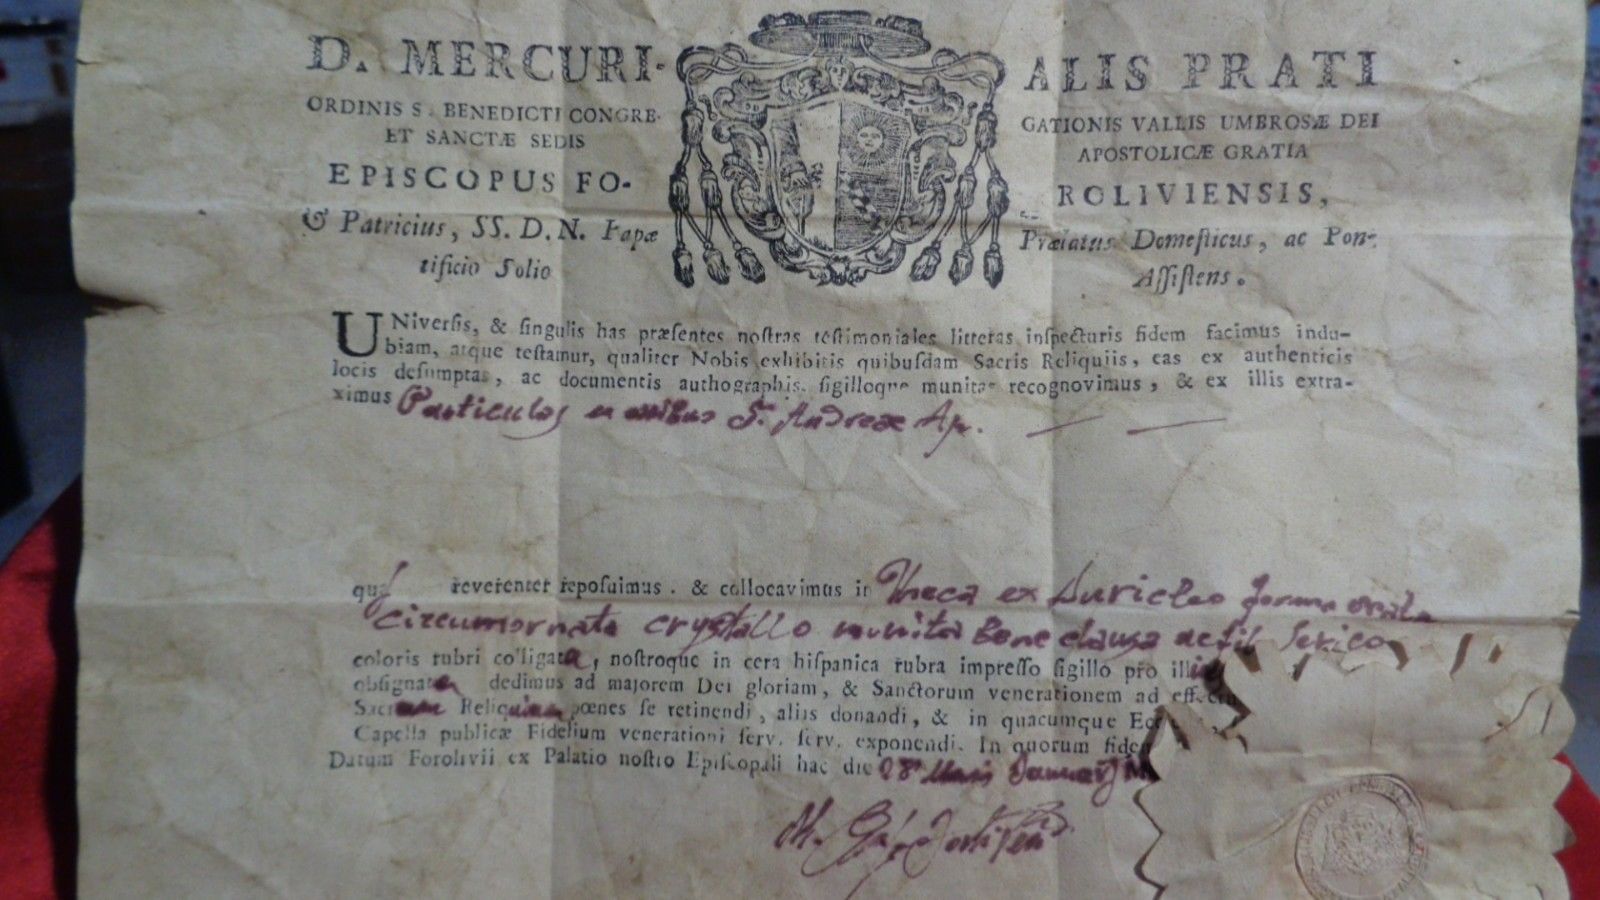 D. MERCURI- ALIS PRATI
ORDINIS S. BENEDICTI CONGRE- GATIONIS VALLIS UMBROSÆ DEI
ET SANCTÆ SEDIS APOSTOLICÆ GRATIA
EPISCOPUS FO- ROLIVIENSIS,
& Patricius, SS. D. N. Papæ Prælatus Domeſticus, ac Pon-
tificio Solio Aſſiſtens.
UNiverſis, & ſingulis has præſentes noſtras teſtimoniales litteras inſpecturis fidem facimus indu-
biam, atque teſtamur, qualiter Nobis exhibitis quibuſdam Sacris Reliquiis, eas ex authenticis
locis deſumptas, ac documentis authographis, ſigilloque munitas recognovimus, & ex illis extra-
ximus Particulas ex ossibus S. Andreæ Ap.
quas reverenter repoſuimus. & collocavimus in Theca ex Auricleo forma ovata
circumornata crystallo munita bene clausa ac fil. serico
coloris rubri colligata, noſtroque in cera hiſpanica rubra impreſſo ſigillo pro
obſignata dedimus ad majorem Dei gloriam, & Sanctorum venerationem ad effectum
Sacram Reliquiam pœnes ſe retinendi, aliis donandi, & in quacumque
Capella publicæ Fidelium venerationi ſerv. ſerv. exponendi. In quorum fidem
Datum Forolivii ex Palatio noſtro Epiſcopali hac die 28 Mensis Januarij M